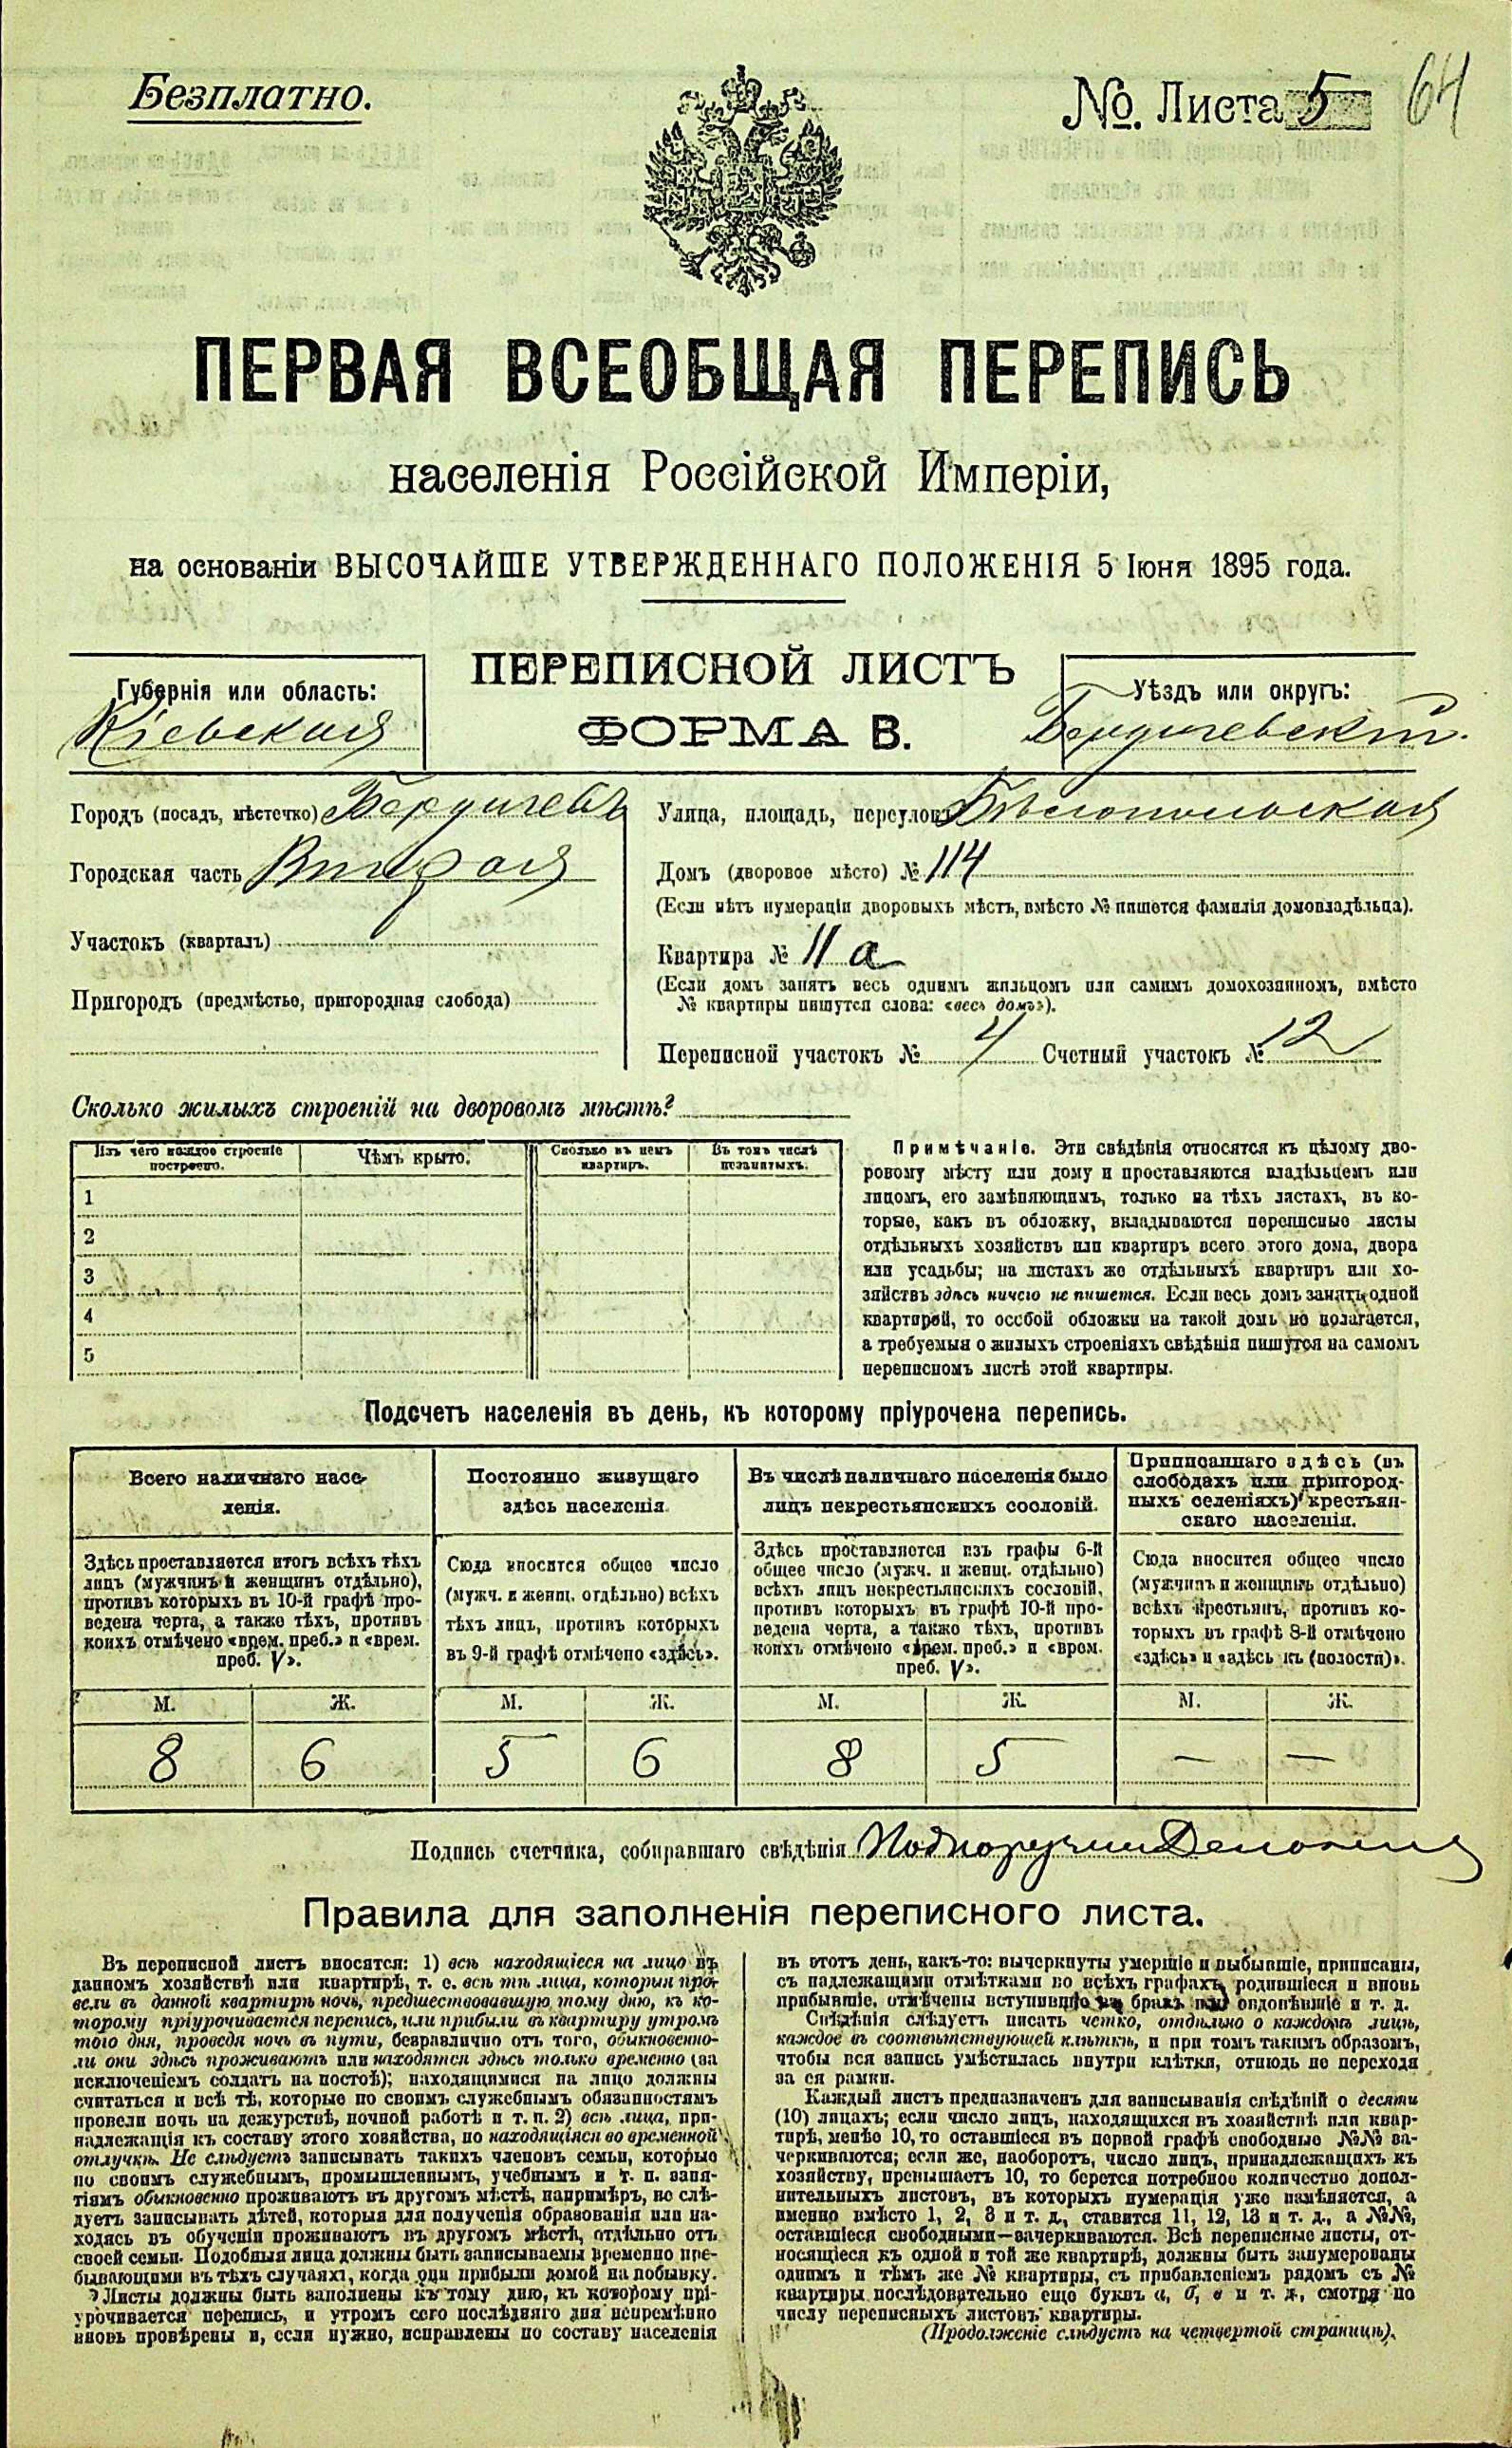 Безплатно.
№. Листа 5
64
ПЕРВАЯ ВСЕОБЩАЯ ПЕРЕПИСЬ
населенія Россійской Имперіи,
на основаніи ВЫСОЧАЙШЕ УТВЕРЖДЕННАГО ПОЛОЖЕНІЯ 5 Іюня 1895 года.
ПЕРЕПИСНОЙ ЛИСТЪ
ФОРМА В.
Губернія или область:
Кіевская
Уѣздъ или округъ:
Бердичевскій.
Городъ (посадъ, мѣстечко) Бердичевъ
Городская часть Вторая
Участокъ (кварталъ)
Пригородъ (предмѣстье, пригородная слобода)
Улица, площадь, переулокъ Бѣлопольская
Домъ (дворовое мѣсто) № 114
(Если нѣтъ нумераціи дворовыхъ мѣстъ, вмѣсто № пишется фамилія домовладѣльца).
Квартира № 11 а
(Если домъ занятъ весь однимъ жильцомъ или самимъ домохозяиномъ, вмѣсто
№ квартиры пишутся слова: «весь домъ»).
Переписной участокъ № 4 Счетный участокъ № 12
Сколько жилыхъ строеній на дворовомъ мѣстѣ?
Изъ чего каждое строеніе
построено.
Чѣмъ крыто.
Сколько въ немъ
квартиръ.
Въ томъ числѣ
незанятыхъ.
1
2
3
4
5
Примѣчаніе. Эти свѣдѣнія относятся къ цѣлому дво-
ровому мѣсту или дому и проставляются владѣльцемъ или
лицомъ, его замѣняющимъ, только на тѣхъ листахъ, въ ко-
торые, какъ въ обложку, вкладываются переписные листы
отдѣльныхъ хозяйствъ или квартиръ всего этого дома, двора
или усадьбы; на листахъ же отдѣльныхъ квартиръ или хо-
зяйствъ здѣсь ничего не пишется. Если весь домъ занятъ одной
квартирой, то особой обложки на такой домъ не полагается,
а требуемыя о жилыхъ строеніяхъ свѣдѣнія пишутся на самомъ
переписномъ листѣ этой квартиры.
Подсчетъ населенія въ день, къ которому пріурочена перепись.
Всего наличнаго насе-
ленія.
Здѣсь проставляется итогъ всѣхъ тѣхъ
лицъ (мужчинъ и женщинъ отдѣльно),
противъ которыхъ въ 10-й графѣ про-
ведена черта, а также тѣхъ, противъ
коихъ отмѣчено «врем. преб.» и «врем.
преб. V».
Постоянно живущаго
здѣсь населенія
Сюда вносится общее число
(мужч. и женщ. отдѣльно) всѣхъ
тѣхъ лицъ, противъ которыхъ
въ 9-й графѣ отмѣчено «здѣсь».
Въ числѣ наличнаго населенія было
лицъ некрестьянскихъ сословій.
Здѣсь проставляется изъ графы 6-й
общее число (мужч. и женщ. отдѣльно)
всѣхъ лицъ некрестьянскихъ сословій,
противъ которыхъ въ графѣ 10-й про-
ведена черта, а также тѣхъ, противъ
коихъ отмѣчено «врем. преб.» и «врем.
преб. V».
Приписаннаго здѣсь (въ
слободахъ или пригород-
ныхъ селеніяхъ) крестьян-
скаго населенія.
Сюда вносится общее число
(мужчинъ и женщинъ отдѣльно)
всѣхъ крестьянъ, противъ ко-
торыхъ въ графѣ 8-й отмѣчено
«здѣсь» и «здѣсь къ (волости)».
М. Ж. М. Ж. М. Ж. М. Ж.
8 6 5 6 8 5 — —
Подпись счетчика, собиравшаго свѣдѣнія Подпоручикъ
Правила для заполненія переписного листа.
Въ переписной листъ вносятся: 1) всѣ находящіеся на лицо въ
данномъ хозяйствѣ или квартирѣ, т. е. всѣ тѣ лица, которыя про-
вели въ данной квартирѣ ночь, предшествовавшую тому дню, къ ко-
торому пріурочивается перепись, или прибыли въ квартиру утромъ
того дня, проведя ночь въ пути, безразлично отъ того, обыкновенно-
ли они здѣсь проживаютъ или находятся здѣсь только временно (за
исключеніемъ солдатъ на постоѣ); находящимися на лицо должны
считаться и всѣ тѣ, которые по своимъ служебнымъ обязанностямъ
провели ночь на дежурствѣ, ночной работѣ и т. п. 2) всѣ лица, при-
надлежащія къ составу этого хозяйства, но находящіяся во временной
отлучкѣ. Не слѣдуетъ записывать такихъ членовъ семьи, которые
по своимъ служебнымъ, промышленнымъ, учебнымъ и т. п. заня-
тіямъ обыкновенно проживаютъ въ другомъ мѣстѣ, напримѣръ, не слѣ-
дуетъ записывать дѣтей, которыя для полученія образованія или на-
ходясь въ обученіи проживаютъ въ другомъ мѣстѣ, отдѣльно отъ
своей семьи. Подобныя лица должны быть записываемы временно пре-
бывающими въ тѣхъ случаяхъ, когда они прибыли домой на побывку.
Листы должны быть заполнены къ тому дню, къ которому прі-
урочивается перепись, и утромъ сего послѣдняго дня непремѣнно
вновь провѣрены и, если нужно, исправлены по составу населенія
въ этотъ день, какъ-то: вычеркнуты умершіе и выбывшіе, приписаны,
съ надлежащими отмѣтками во всѣхъ графахъ родившіеся и вновь
прибывшіе, отмѣчены вступившіе въ бракъ или овдовѣвшіе и т. д.
Свѣдѣнія слѣдуетъ писать четко, отдѣльно о каждомъ лицѣ,
каждое въ соотвѣтствующей клѣткѣ, и при томъ такимъ образомъ,
чтобы вся запись умѣстилась внутри клѣтки, отнюдь не переходя
за ея рамки.
Каждый листъ предназначенъ для записыванія свѣдѣній о десяти
(10) лицахъ; если число лицъ, находящихся въ хозяйствѣ или квар-
тирѣ, менѣе 10, то оставшіеся въ первой графѣ свободные №№ за-
черкиваются; если же, наоборотъ, число лицъ, принадлежащихъ къ
хозяйству, превышаетъ 10, то берется потребное количество допол-
нительныхъ листовъ, въ которыхъ нумерація уже измѣняется, а
именно вмѣсто 1, 2, 3 и т. д., ставится 11, 12, 13 и т. д., а №№,
оставшіеся свободными—зачеркиваются. Всѣ переписные листы, от-
носящіеся къ одной и той же квартирѣ, должны быть занумерованы
однимъ и тѣмъ же № квартиры, съ прибавленіемъ рядомъ съ №
квартиры послѣдовательно еще буквъ а, б, в и т. д., смотря по
числу переписныхъ листовъ квартиры.
(Продолженіе слѣдуетъ на четвертой страницѣ).